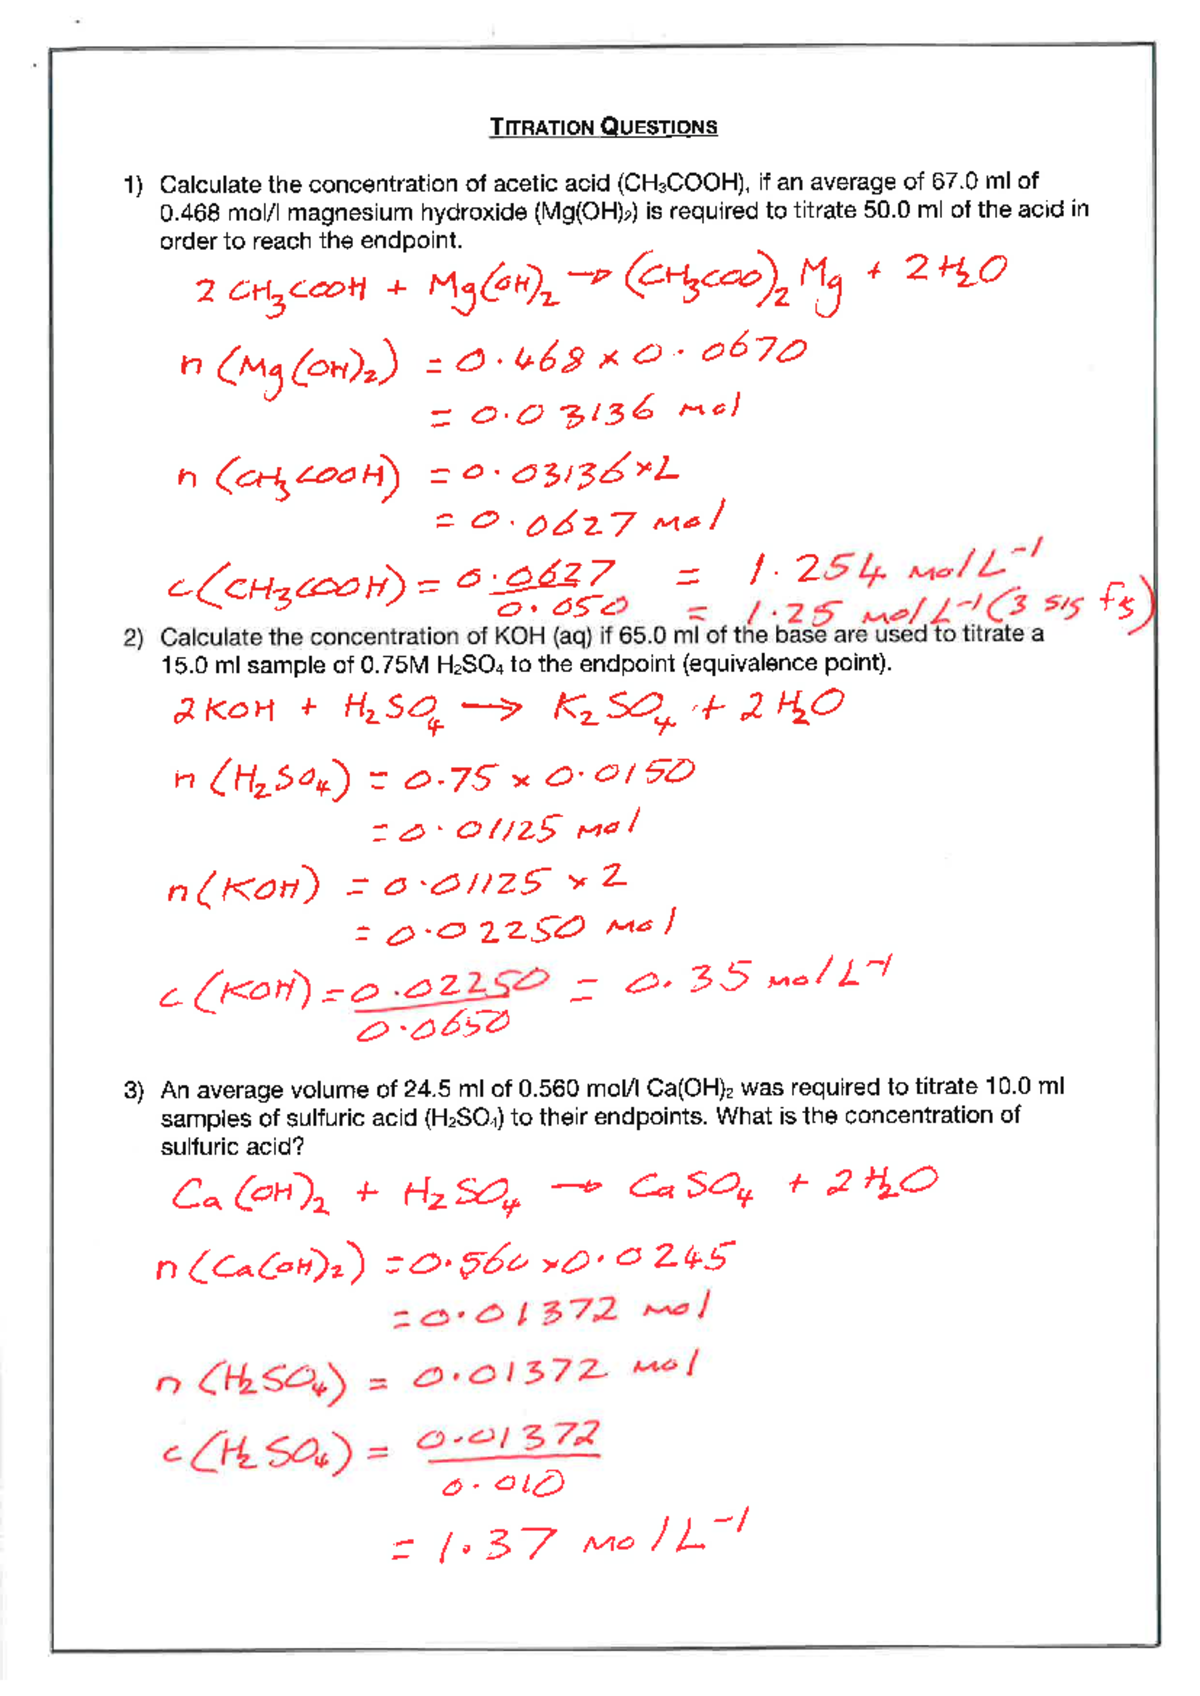 TITRATION QUESTIONS
1) Calculate the concentration of acetic acid (CH₃COOH), if an average of 67.0 ml of
0.468 mol/l magnesium hydroxide (Mg(OH)₂) is required to titrate 50.0 ml of the acid in
order to reach the endpoint.
2 CH₃COOH + Mg(OH)₂ → (CH₃COO)₂ Mg + 2 H₂O
n (Mg(OH)₂) = 0.468 × 0.0670
= 0.03136 mol
n (CH₃COOH) = 0.03136 × 2
= 0.0627 mol
c(CH₃COOH) = 0.0627 / 0.050 = 1.254 mol L⁻¹
= 1.25 mol L⁻¹ (3 sig fs)
2) Calculate the concentration of KOH (aq) if 65.0 ml of the base are used to titrate a
15.0 ml sample of 0.75M H₂SO₄ to the endpoint (equivalence point).
2 KOH + H₂SO₄ → K₂SO₄ + 2 H₂O
n (H₂SO₄) = 0.75 × 0.0150
= 0.01125 mol
n (KOH) = 0.01125 × 2
= 0.02250 mol
c (KOH) = 0.02250 / 0.0650 = 0.35 mol L⁻¹
3) An average volume of 24.5 ml of 0.560 mol/l Ca(OH)₂ was required to titrate 10.0 ml
samples of sulfuric acid (H₂SO₄) to their endpoints. What is the concentration of
sulfuric acid?
Ca(OH)₂ + H₂SO₄ → CaSO₄ + 2 H₂O
n (Ca(OH)₂) = 0.560 × 0.0245
= 0.01372 mol
n (H₂SO₄) = 0.01372 mol
c (H₂SO₄) = 0.01372 / 0.010
= 1.37 mol L⁻¹